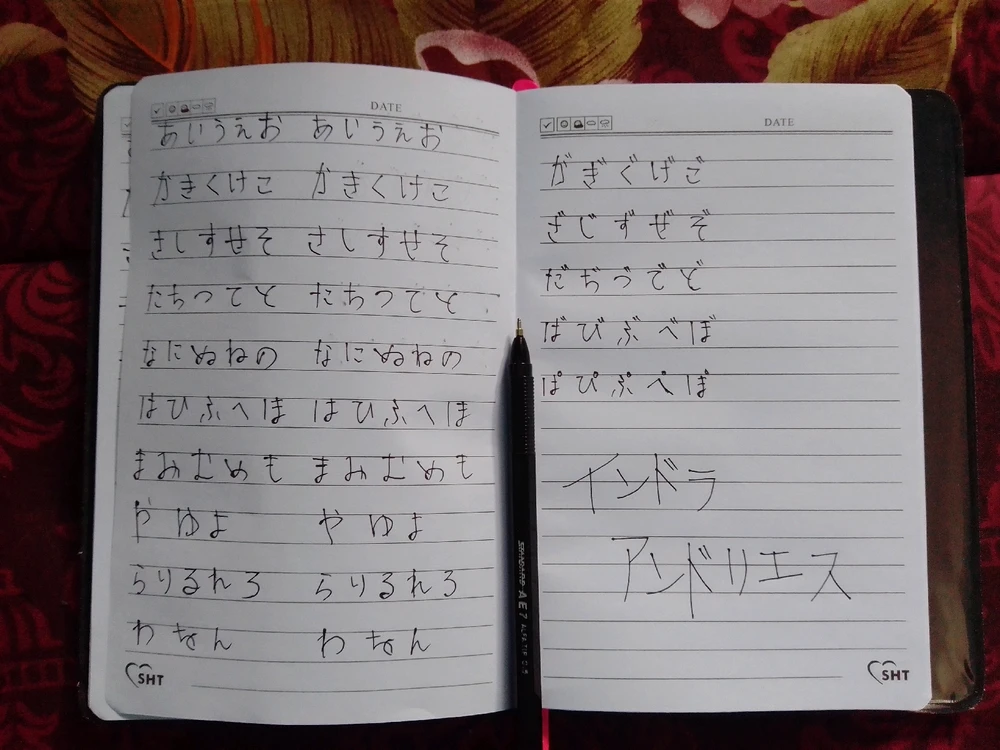 DATE
あいうえお あいうえお
かきくけこ かきくけこ
さしすせそ さしすせそ
たちつてと たちつてと
なにぬねの なにぬねの
はひふへほ はひふへほ
まみむめも まみむめも
やゆよ やゆよ
らりるれろ らりるれろ
わをん わをん
SHT
DATE
がぎぐげご
ざじずぜぞ
だぢづでど
ばびぶべぼ
ぱぴぷぺぽ
インドラ
アンドリエス
SHT
STANDARD AE7 ALFATIP 0.5